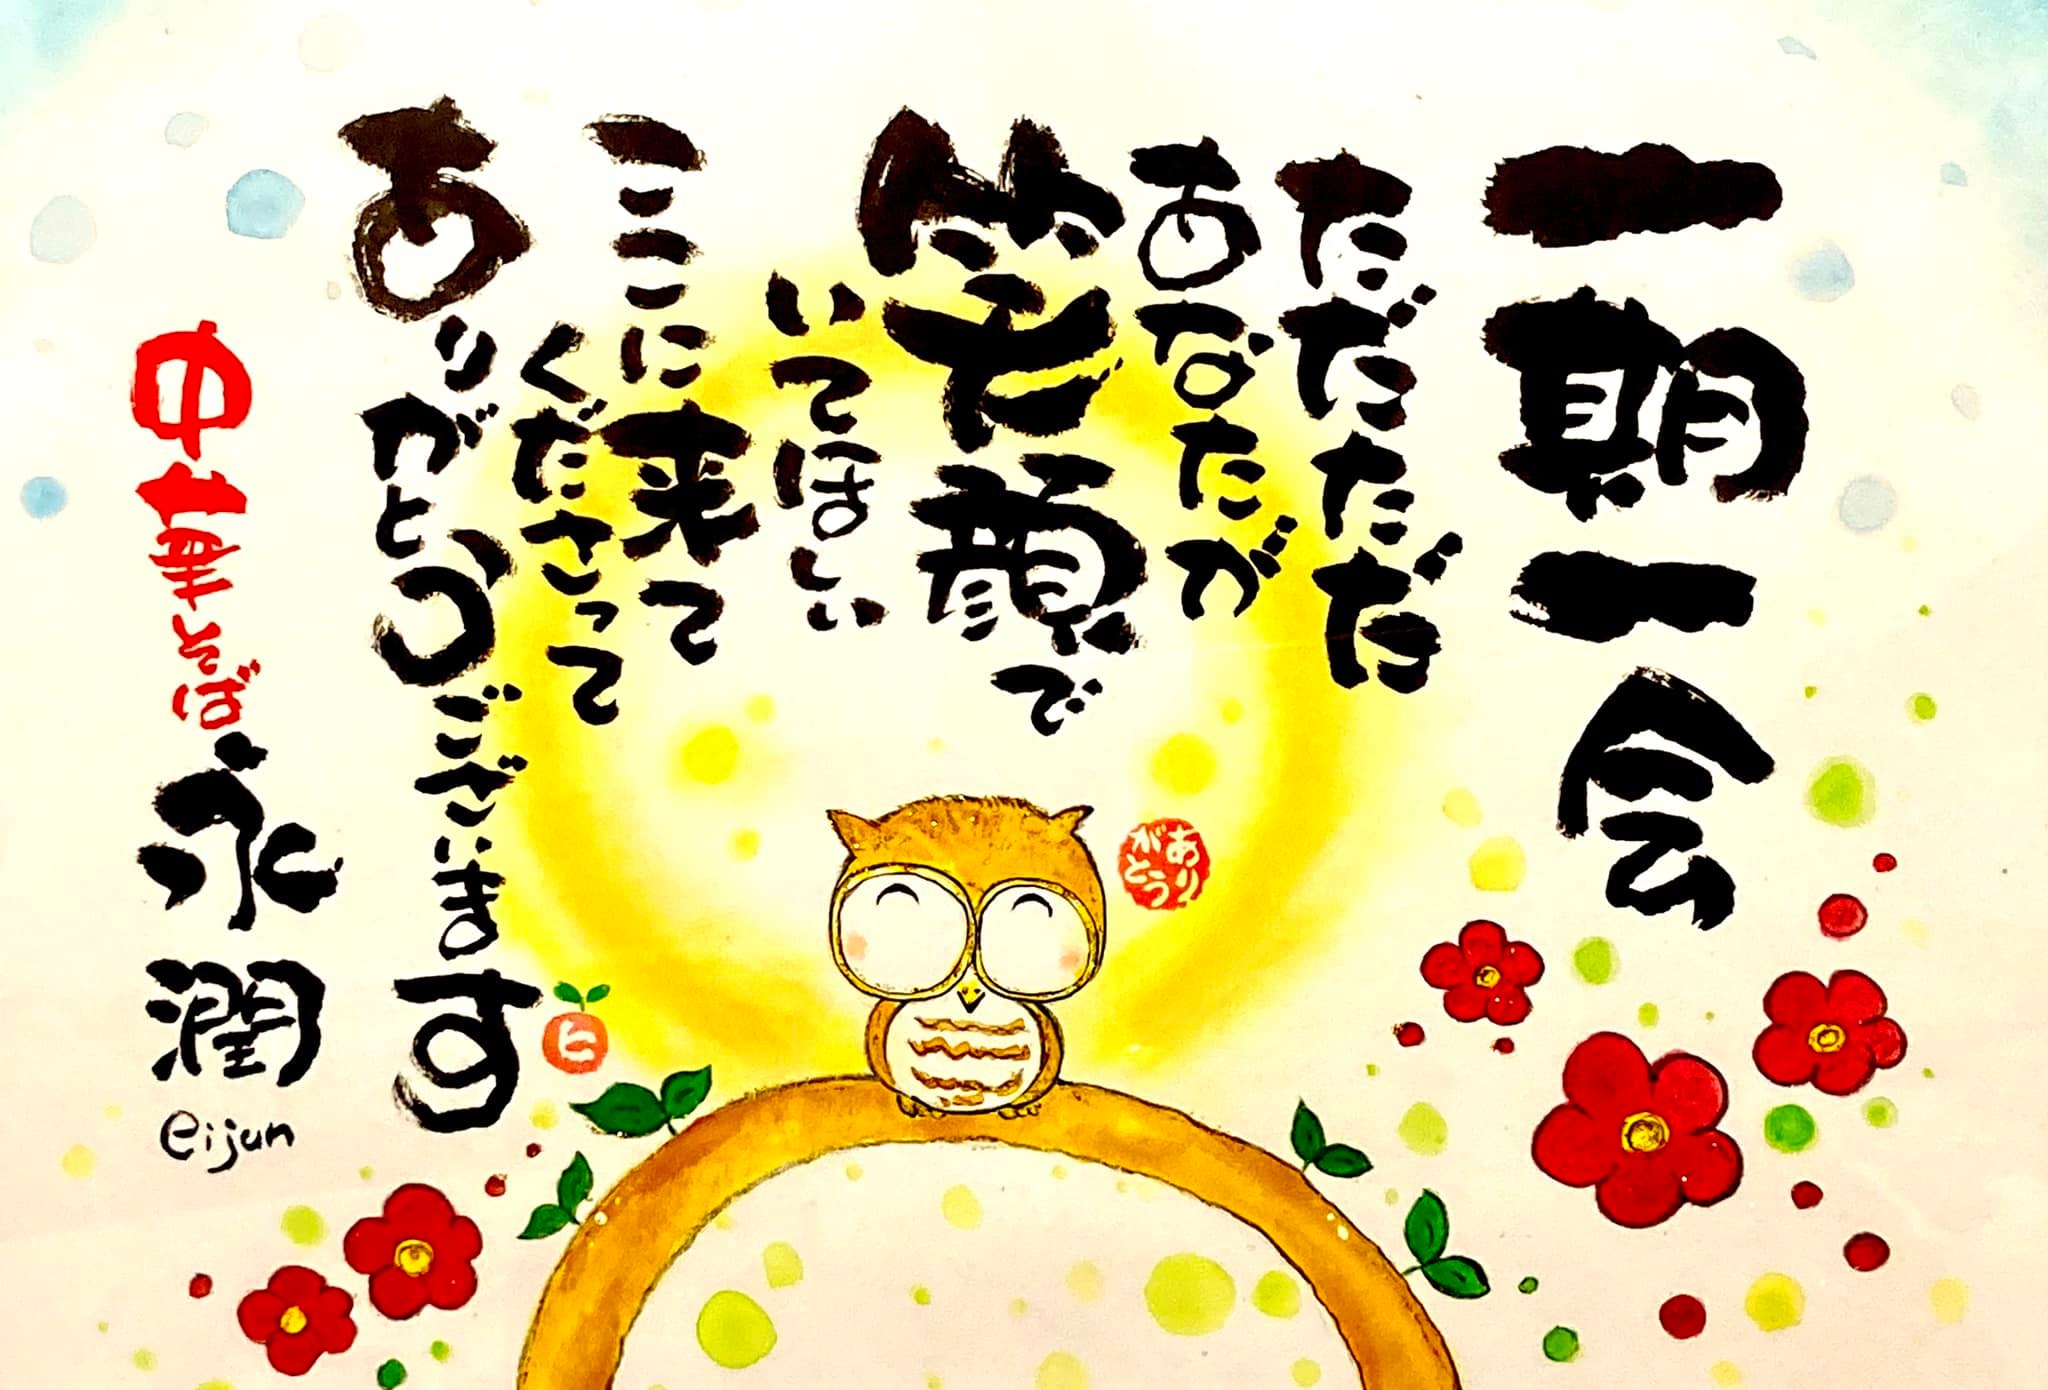 一期一会
ただただ
あなたが
笑顔で
いてほしい
ここに来て
くださって
ありがとうございます
中華そば永潤
eijun
ありがとう
ヒ